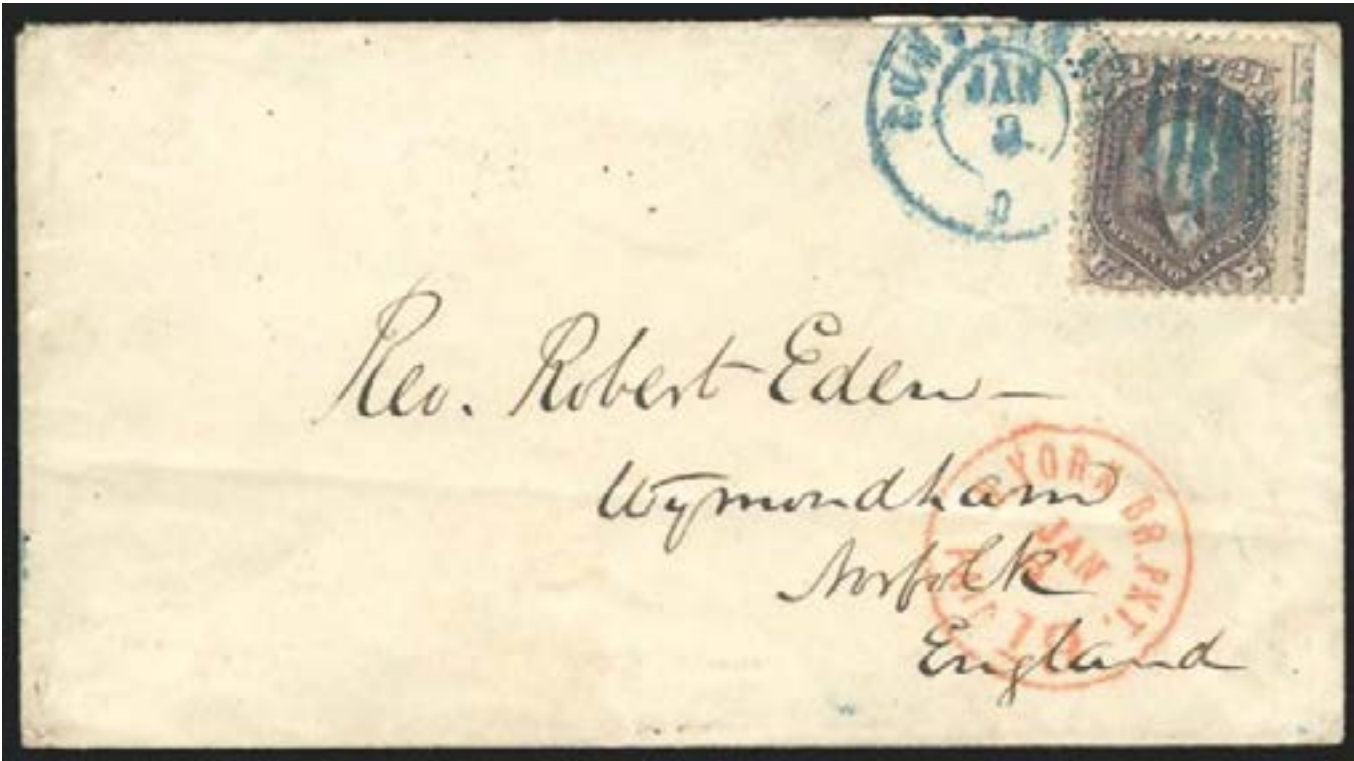 JAN
Rev. Robert Eden —
Wymondham
Norfolk
England
YORK BR. PKT.
JAN
PAID